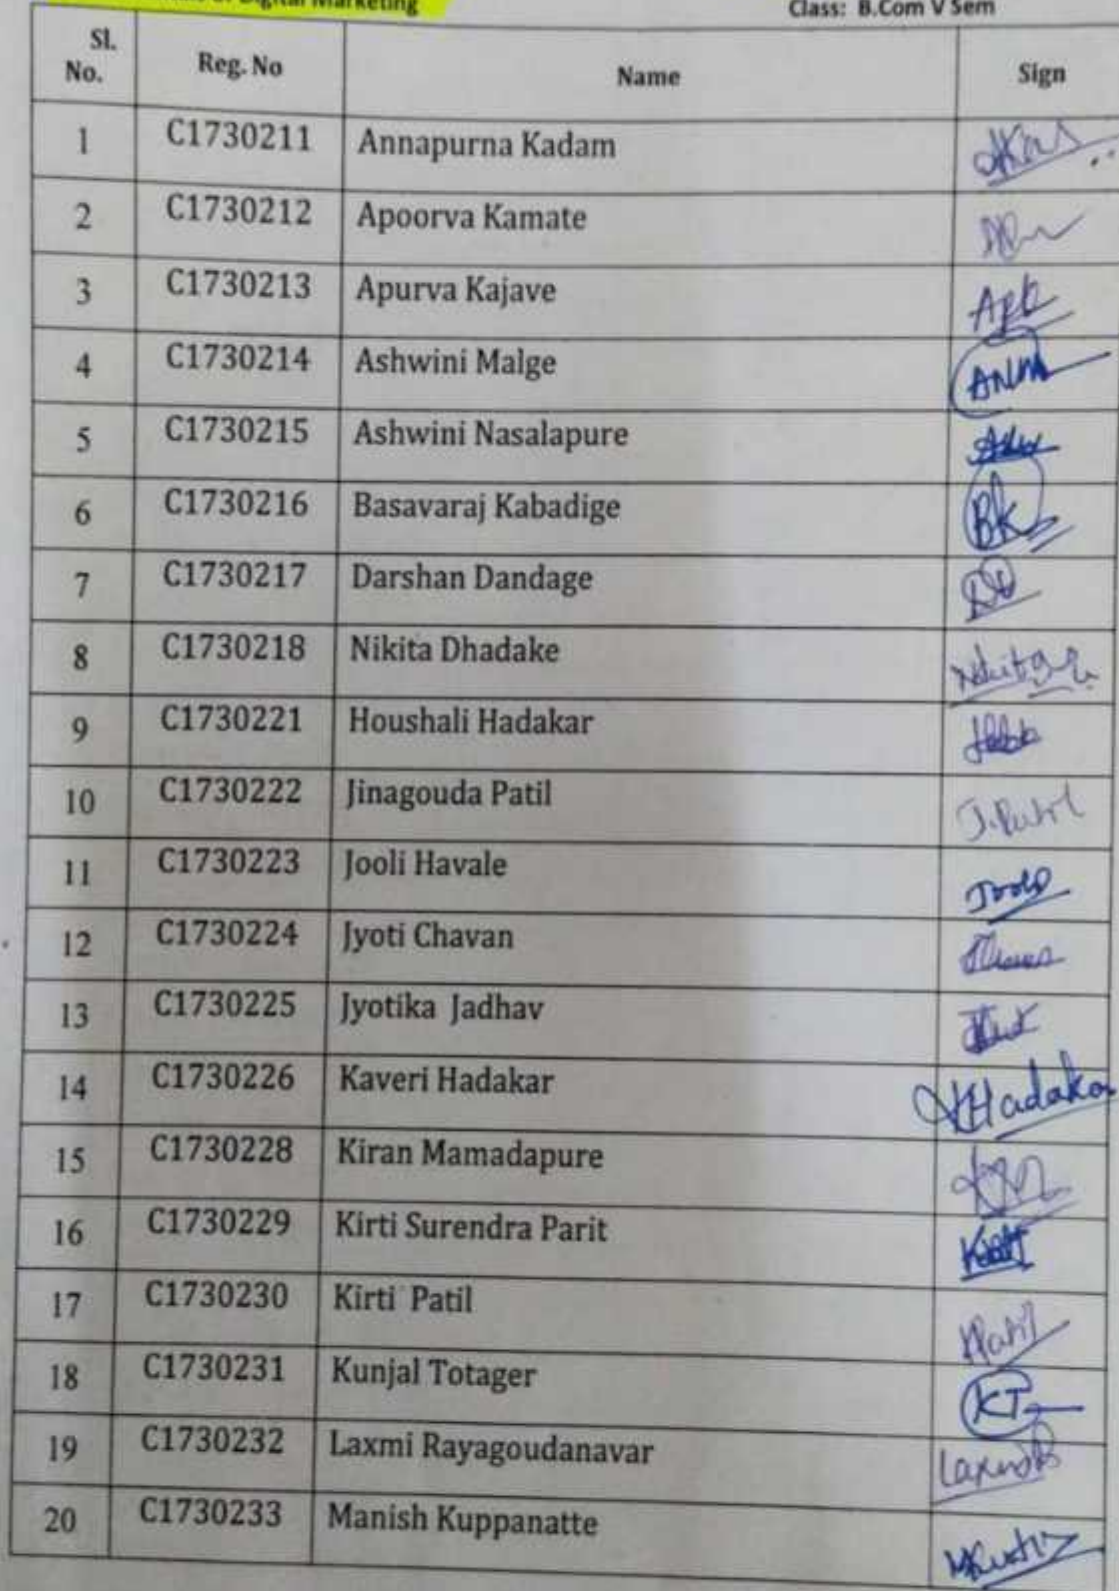 Digital Marketing Class: B.Com V Sem
Sl. No. Reg. No Name Sign
1 C1730211 Annapurna Kadam
2 C1730212 Apoorva Kamate
3 C1730213 Apurva Kajave
4 C1730214 Ashwini Malge
5 C1730215 Ashwini Nasalapure
6 C1730216 Basavaraj Kabadige BK
7 C1730217 Darshan Dandage DD
8 C1730218 Nikita Dhadake
9 C1730221 Houshali Hadakar
10 C1730222 Jinagouda Patil J.Patil
11 C1730223 Jooli Havale
12 C1730224 Jyoti Chavan
13 C1730225 Jyotika Jadhav
14 C1730226 Kaveri Hadakar
15 C1730228 Kiran Mamadapure
16 C1730229 Kirti Surendra Parit
17 C1730230 Kirti Patil
18 C1730231 Kunjal Totager KT
19 C1730232 Laxmi Rayagoudanavar
20 C1730233 Manish Kuppanatte